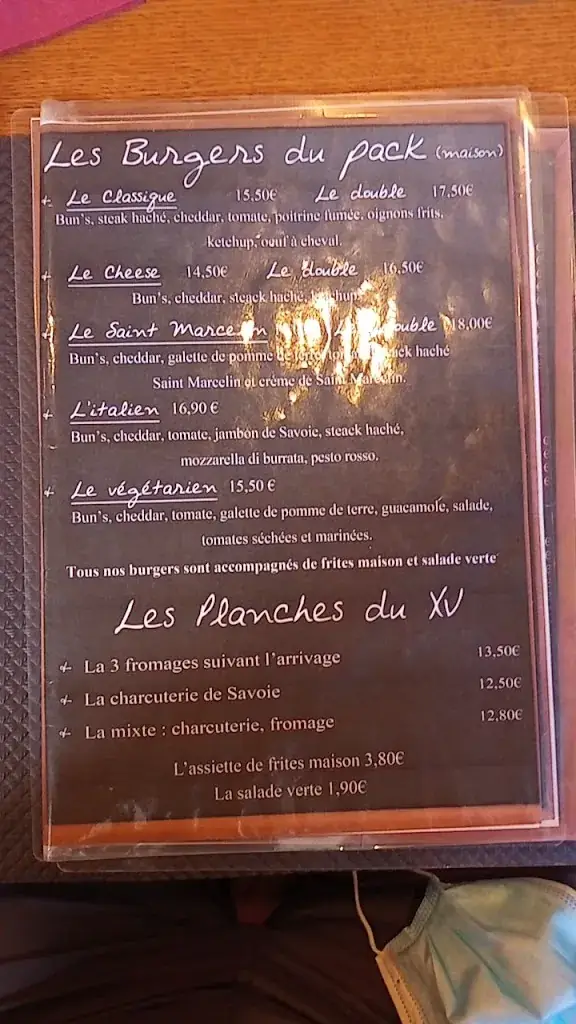 Les Burgers du pack (maison)
Le Classique 15,50€ Le double 17,50€
Bun's, steak haché, cheddar, tomate, poitrine fumée, oignons frits,
ketchup, oeuf à cheval.
Le Cheese 14,50€ Le double 16,50€
Bun's, cheddar, steack haché, ketchup
Le Saint Marcelin Le double 18,00€
Bun's, cheddar, galette de pomme de terre, steack haché
Saint Marcelin et crème de Saint Marcelin.
L'italien 16,90 €
Bun's, cheddar, tomate, jambon de Savoie, steack haché,
mozzarella di burrata, pesto rosso.
Le végétarien 15,50 €
Bun's, cheddar, tomate, galette de pomme de terre, guacamole, salade,
tomates séchées et marinées.
Tous nos burgers sont accompagnés de frites maison et salade verte
Les Planches du XV
La 3 fromages suivant l'arrivage 13,50€
La charcuterie de Savoie 12,50€
La mixte : charcuterie, fromage 12,80€
L'assiette de frites maison 3,80€
La salade verte 1,90€